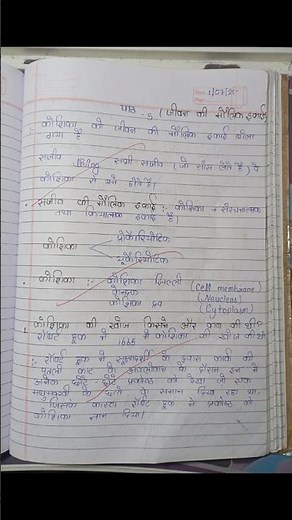 1/07/25
पाठ - 5 (जीवन की मौलिक इकाई)
कोशिका को जीवन की मौलिक इकाई
गया है
सजीव living सभी सजीव (जो साँस लेते हैं) वे
कोशिका से बने होते हैं।
सजीव की मौलिक इकाई : कोशिका - संरचनात्मक
तथा क्रियात्मक इकाई है।
प्रोकैरियोटिक
कोशिका
यूकैरियोटिक
कोशिका :- कोशिका झिल्ली (cell membrane)
केन्द्रक (Naucleus)
कोशिका द्रव्य (Cytoplasm)
1. कोशिका की खोज किसने और कब की थी?
रॉबर्ट हुक ने 1665 में कोशिका की खोज की थी
:- रॉबर्ट हुक ने सूक्ष्मदर्शी के कार्क की
पतली काट के अवलोकन के दौरान इन में
अनेक छोटे छोटे प्रकोष्ठ को देखा जो एक
मधुमक्खी के छत्ते के समान दिख रहा था
जिसके कारण रॉबर्ट हुक ने प्रकोष्ठ को
कोशिका नाम दिया।